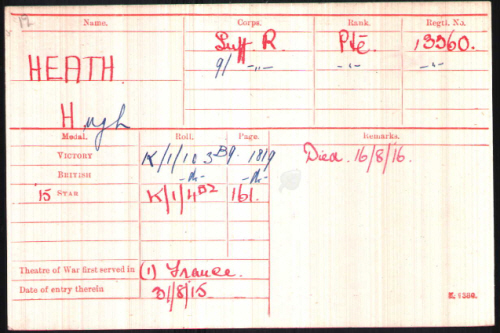 Name. Corps. Rank. Regtl. No.
HEATH Suff. R. Pte 13360.
9/ -"- -"- -"-
Hugh
Medal. Roll. Page. Remarks.
VICTORY K/1/103 B9. 1819 Died. 16/8/16.
BRITISH -do- -do-
15 STAR K/1/4 B2 161.
Theatre of War first served in (1) France.
Date of entry therein 31/8/15
K. 1380.